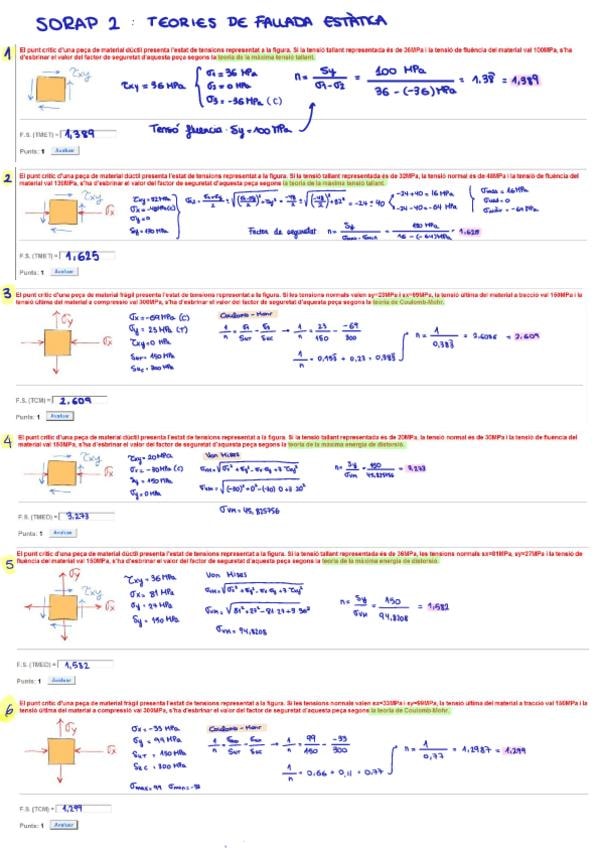 SORAP 2 : TEORIES DE FALLADA ESTÀTICA
1 El punt crític d'una peça de material dúctil presenta l'estat de tensions representat a la figura. Si la tensió tallant representada és de 36MPa i la tensió de fluència del material val 100MPa, s'ha
d'esbrinar el valor del factor de seguretat d'aquesta peça segons la teoria de la màxima tensió tallant.
τxy
τxy = 36 MPa
σ1 = 36 MPa
σ2 = 0 MPa
σ3 = -36 MPa (C)
n = Sy / σ1-σ2 = 100 MPa / 36 - (-36) MPa = 1.38 = 1,389
Tensó fluencia · Sy = 100 MPa
F.S. (TMET) = 1,389
Punts: 1 Avaluar
2 El punt crític d'una peça de material dúctil presenta l'estat de tensions representat a la figura. Si la tensió tallant representada és de 32MPa, la tensió normal és de 48MPa i la tensió de fluència del
material val 130MPa, s'ha d'esbrinar el valor del factor de seguretat d'aquesta peça segons la teoria de la màxima tensió tallant.
τxy
σx
τxy = 32 MPa
σx = -48 MPa (C)
σy = 0
Sy = 130 MPa
= -24 ± 40
-24+40 = 16 MPa
-24-40 = -64 MPa
σmax = 16 MPa
Factor de seguretat n = Sy / σmax - σmin = 130 MPa / 16 - (-64) MPa = 1,625
F.S. (TMET) = 1,625
Punts: 1 Avaluar
3 El punt crític d'una peça de material fràgil presenta l'estat de tensions representat a la figura. Si les tensions normals valen sy=23MPa i sx=69MPa, la tensió última del material a tracció val 150MPa i la
tensió última del material a compressió val 300MPa, s'ha d'esbrinar el valor del factor de seguretat d'aquesta peça segons la teoria de Coulomb-Mohr.
σy
σx
σx = -69 MPa (C)
σy = 23 MPa (T)
τxy = 0 MPa
SUT = 150 MPa
SUC = 300 MPa
Coulomb - Mohr
1/n = σ1/SUT - σ3/SUC → 1/n = 23/150 - -69/300
1/n = 0,153 + 0,23 = 0,383
n = 1 / 0,383 = 2,6086 = 2,609
F.S. (TCM) = 2,609
Punts: 1 Avaluar
4 El punt crític d'una peça de material dúctil presenta l'estat de tensions representat a la figura. Si la tensió tallant representada és de 20MPa, la tensió normal és de 30MPa i la tensió de fluència del
material val 150MPa, s'ha d'esbrinar el valor del factor de seguretat d'aquesta peça segons la teoria de la màxima energia de distorsió.
τxy
σx
τxy = 20 MPa
σx = -30 MPa (C)
Sy = 150 MPa
σy = 0 MPa
Von Mises
σVM = √σx² + σy² - σx σy + 3 τxy²
σVM = √(-30)² + 0² - (-30) 0 + 3 20²
σVM = 45,825756
n = Sy / σVM = 150 / 45,825756 = 3,273
F.S. (TMED) = 3,273
Punts: 1 Avaluar
5 El punt crític d'una peça de material dúctil presenta l'estat de tensions representat a la figura. Si la tensió tallant representada és de 36MPa, les tensions normals sx=81MPa, sy=27MPa i la tensió de
fluència del material val 150MPa, s'ha d'esbrinar el valor del factor de seguretat d'aquesta peça segons la teoria de la màxima energia de distorsió.
σy
τxy
σx
τxy = 36 MPa
σx = 81 MPa
σy = 27 MPa
Sy = 150 MPa
Von Mises
σVM = √σx² + σy² - σx σy + 3 τxy²
σVM = √81² + 27² - 81·27 + 3·36²
σVM = 94,8208
n = Sy / σVM = 150 / 94,8208 = 1,582
F.S. (TMED) = 1,582
Punts: 1 Avaluar
6 El punt crític d'una peça de material fràgil presenta l'estat de tensions representat a la figura. Si les tensions normals valen sx=33MPa i sy=99MPa, la tensió última del material a tracció val 150MPa i la
tensió última del material a compressió val 300MPa, s'ha d'esbrinar el valor del factor de seguretat d'aquesta peça segons la teoria de Coulomb-Mohr.
σy
σx
σx = -33 MPa
σy = 99 MPa
SUT = 150 MPa
SUC = 300 MPa
σmax = 99 σmin = -33
Coulomb - Mohr
→ 1/n = 99/150 - -33/300
1/n = 0.66 + 0,11 = 0.77
n = 1 / 0,77 = 1,2987 = 1,299
F.S. (TCM) = 1,299
Punts: 1 Avaluar